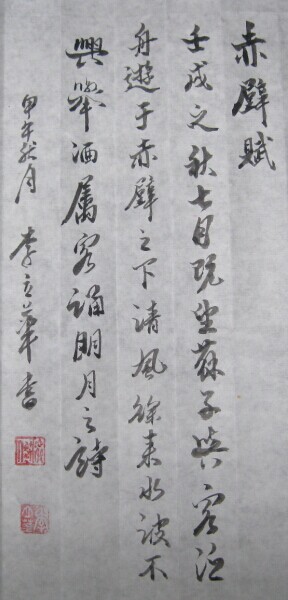 赤壁賦
壬戌之秋七月既望蘇子與客泛
舟遊于赤壁之下清風徐来水波不
興舉酒属客誦明月之詩
甲午秋月 李立華書